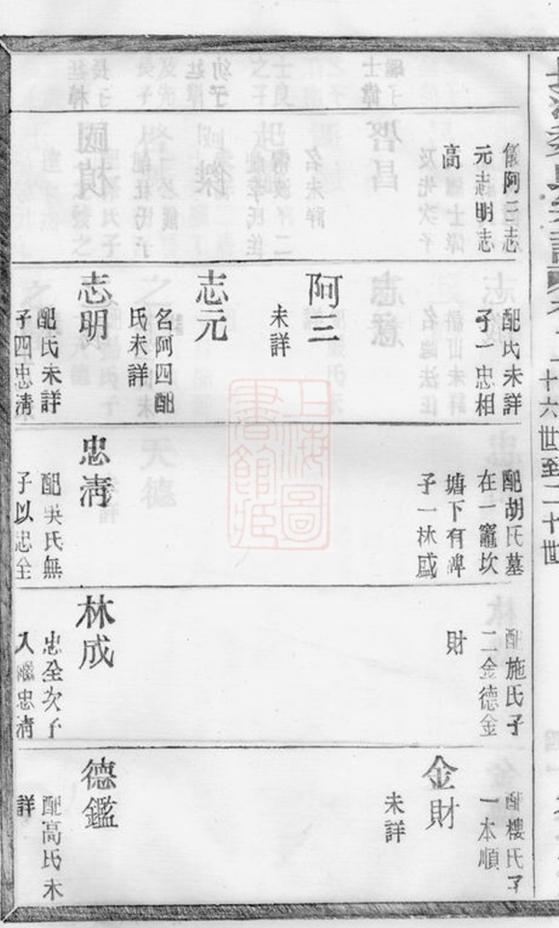 十六世至二十世
儀阿三志
元志明志
高
配氏未詳
子一忠相
阿三
未詳
志元
名阿四配
氏未詳
志明
配氏未詳
子四忠淸
配胡氏墓
在一竈坎
塘下有碑
子一林盛
忠淸
配吳氏無
子以忠全
配施氏子
二金德金
財
林成
忠全次子
入繼忠淸
配樓氏子
一本順
金財
未詳
德鑑
配高氏未
詳
上海圖書館藏